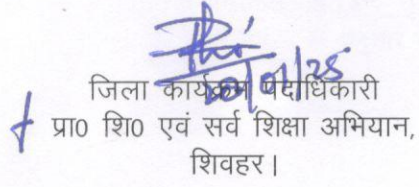 20/01/25
जिला कार्यक्रम पदाधिकारी
प्रा0 शि0 एवं सर्व शिक्षा अभियान,
शिवहर।